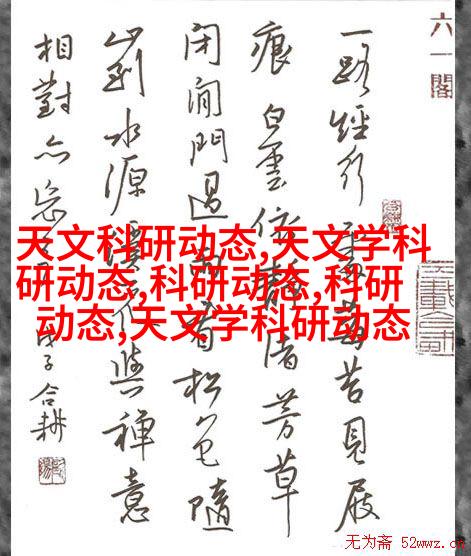 六一閣
一路經行處莓苔見屐
痕白雲依靜渚芳草
閉閒門過雨看松色隨
山到水源溪花與禪意
相對亦忘言戊子合耕
天文科研动态,天文学科
研动态,科研动态,科研
动态,天文学科研动态
无为斋 52wwz.c